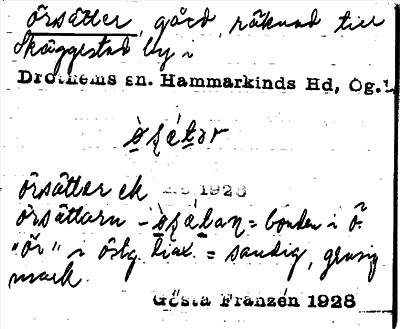 örsätter, gård, räknad till
Skäggestad by i
Drothems sn. Hammarkinds Hd, Ög.l.
örsätter ek 1928
örsättarn - = bonden i Ö.
"ör" i östg. = sandig, grusig
mark.
Gösta Franzén 1928